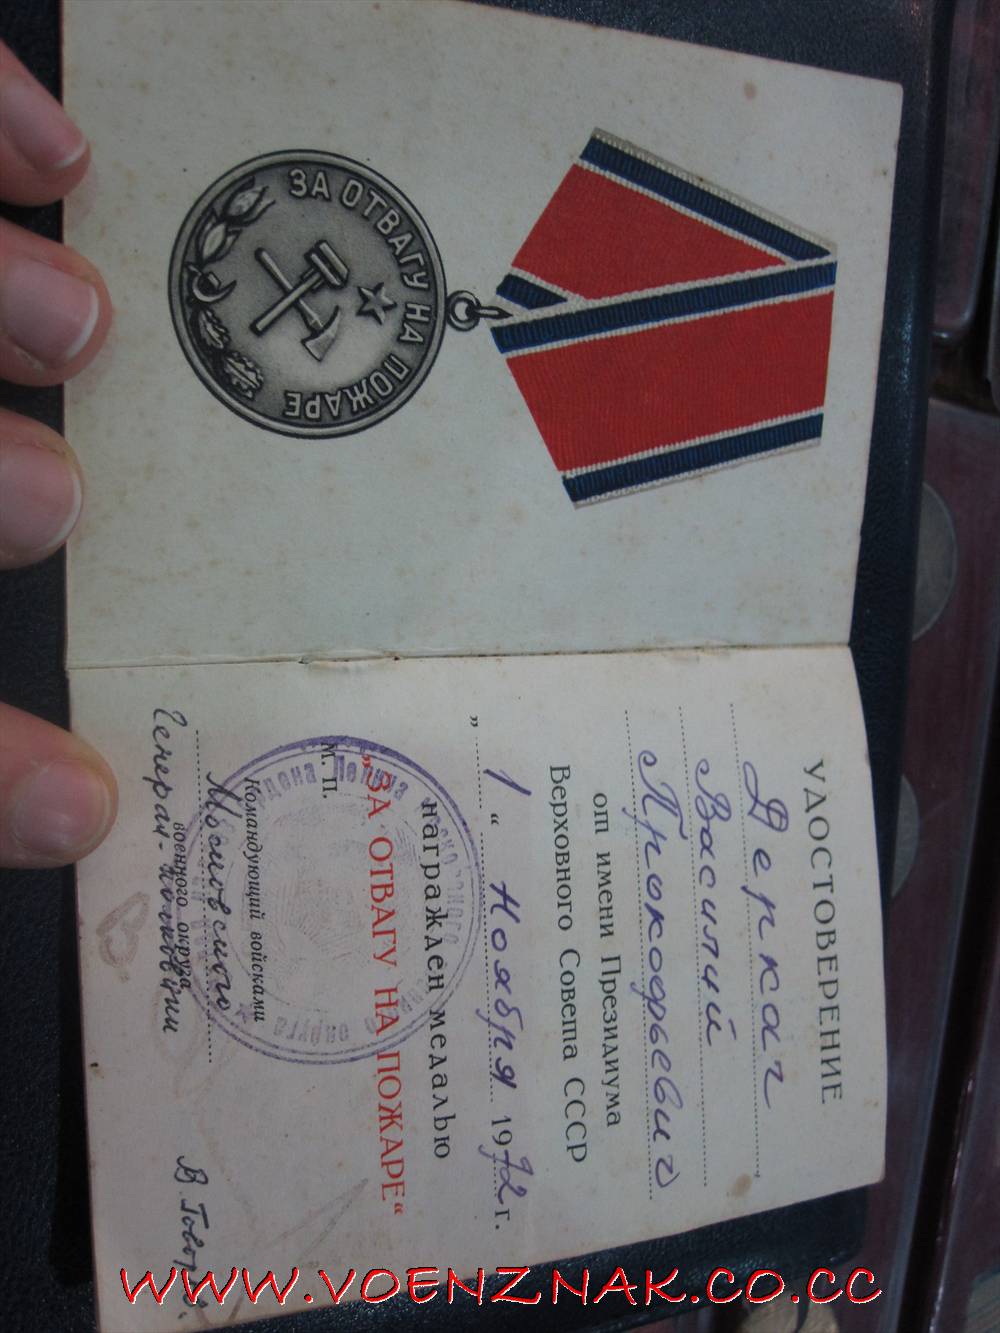 ЗА ОТВАГУ НА ПОЖАРЕ
УДОСТОВЕРЕНИЕ
Деркач
Василий
Прокофьевич
от имени Президиума
Верховного Совета СССР
„ 1 “ Ноября 1972 г.
награжден медалью
„ЗА ОТВАГУ НА ПОЖАРЕ“
М. П.
Командующий войсками
Московского
военного округа
Генерал-полковник
В. Говоров
WWW.VOENZNAK.CO.CC